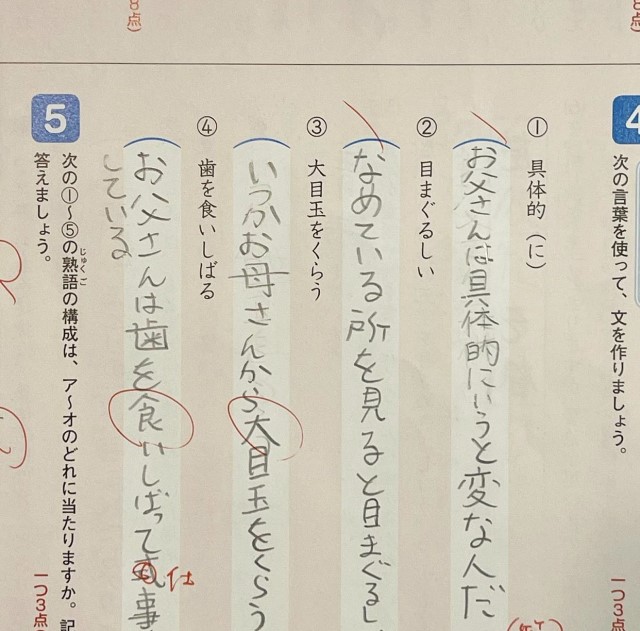 8点)
8点)
4
次の言葉を使って、文を作りましょう。
一つ3点
① 具体的(に)
お父さんは具体的にいうと変なんだ
② 目まぐるしい
なめている所を見ると目まぐるし
③ 大目玉をくらう
いつかお母さんから大目玉をくらう
④ 歯を食いしばる
お父さんは歯を食いしばって事
仕
している
5
次の①〜⑤の熟語の構成は、ア〜オのどれに当たりますか。記
じゅくご
答えましょう。
一つ3点